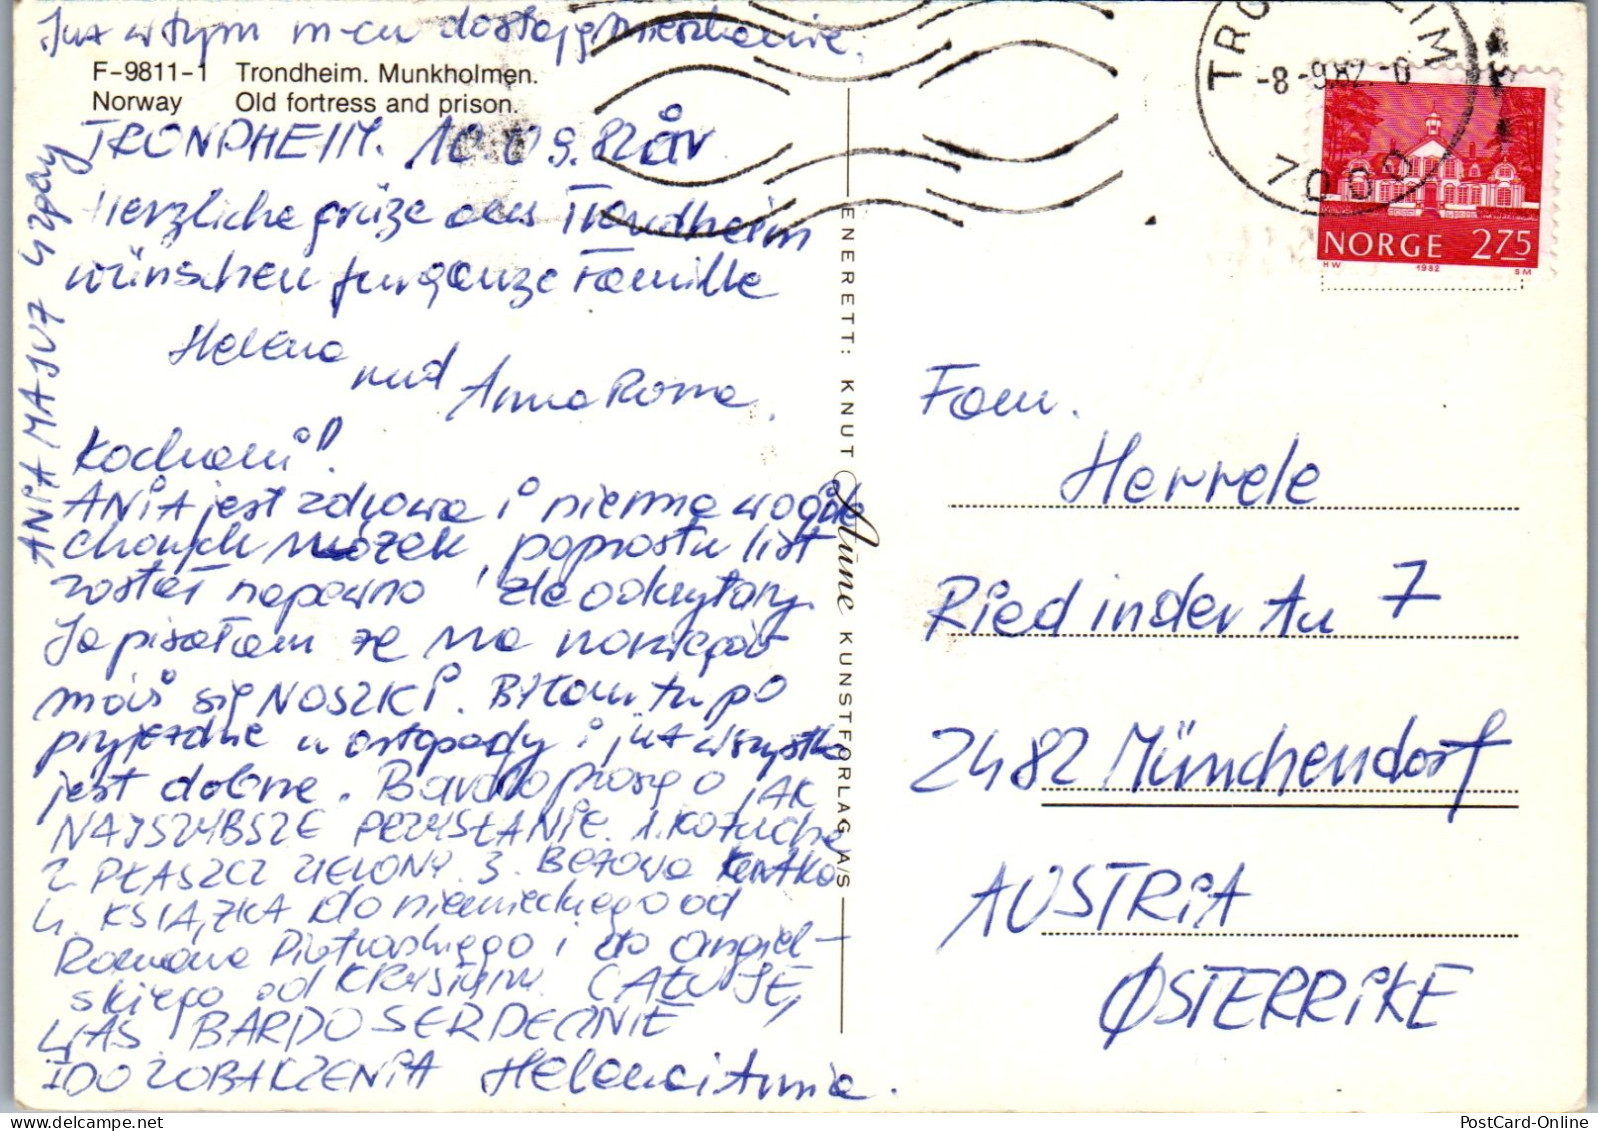 Już w tym m-cu dostaję mieszkanie.
F-9811-1 Trondheim. Munkholmen.
Norway Old fortress and prison.
TRONDHEIM. 10.09.82
Herzliche grüze aus Trondheim
wünschen fur ganze Familie
Helena
und Anna Roma.
Kochani!
ANIA jest zdrowa i niema wogóle
chorych nóżek, poprostu list
został napewno źle odczytany.
Ja pisałam że ma
moiś się NOSZKI. Byłam tu po
przyjezdnie u ortopedy i już wszystko
jest dobrze. Bardzo proszę o JAK
NAJSZYBSZE PRZYSŁANIE. 1. Kożucha
2. PŁASZCZ ZIELONY. 3. BEŻOWA
4. KSIĄŻKA do niemieckiego od
Romana Piotrowskiego i do angiel-
skiego od KRYSTYNY. CAŁUJĘ,
WAS. BARDO SERDECZNIE
I DO ZOBACZENIA Helena i Ania.
ANIA MA JUŻ 4 zęby
ENERETT: KNUT Aune KUNSTFORLAG A/S
TRONDHEIM
-8-9.82.-0
7000
NORGE 2.75
HW 1982 SM
Fam.
Herrele
Ried in der Au 7
2482 Münchendorf
AUSTRIA
ØSTERRIKE
PostCard-Online